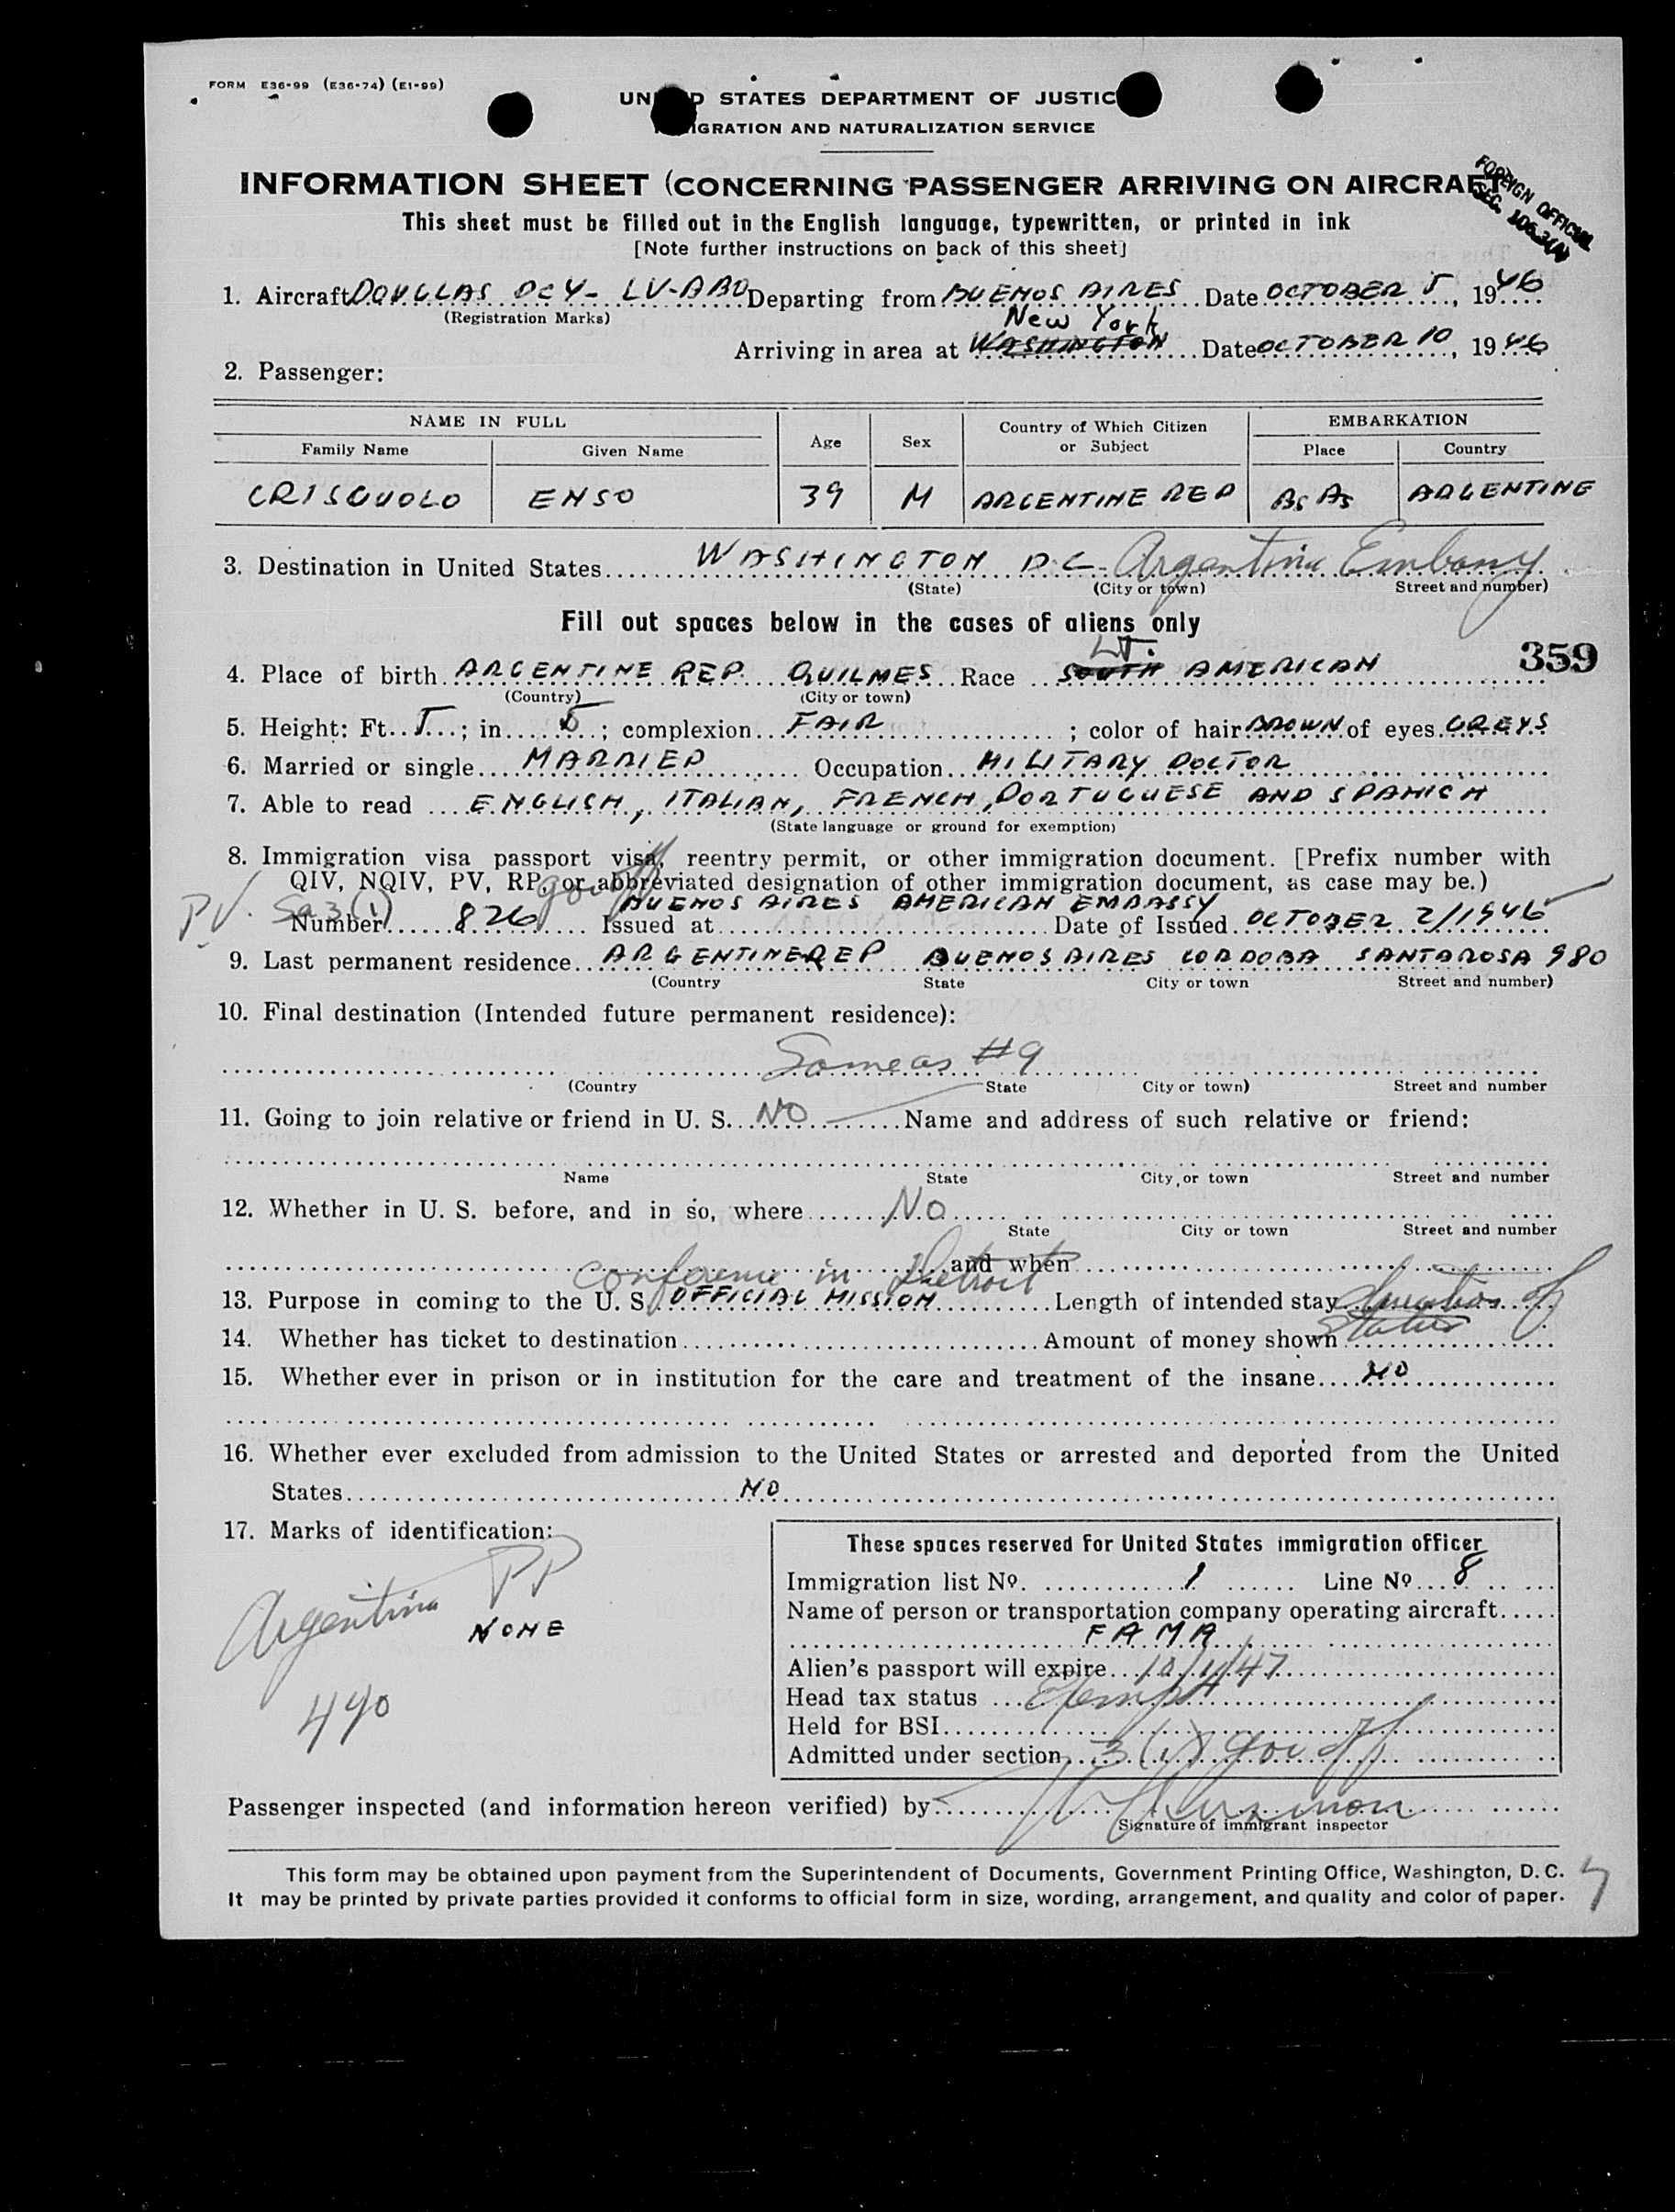 FORM E36-99 (E36-74) (E1-99)
UN D STATES DEPARTMENT OF JUSTIC
IGRATION AND NATURALIZATION SERVICE
INFORMATION SHEET (CONCERNING PASSENGER ARRIVING ON AIRCRAFT
FOREIGN OFFICIAL
SEC.
This sheet must be filled out in the English language, typewritten, or printed in ink
[Note further instructions on back of this sheet]
1. Aircraft DOUGLAS DC4- LV-ABO Departing from BUENOS AIRES Date OCTOBER 5, 1946
(Registration Marks)
New York
Arriving in area at WASHINGTON Date OCTOBER 10, 1946
2. Passenger:
NAME IN FULL Age Sex Country of Which Citizen or Subject EMBARKATION
Family Name Given Name Place Country
CRISCUOLO ENSO 39 M ARGENTINE REP Bs As ARGENTINE
3. Destination in United States WASHINGTON D.C. Argentine Embassy
(State) (City or town) Street and number)
Fill out spaces below in the cases of aliens only
359
Lt.
4. Place of birth ARGENTINE REP. QUILMES Race SOUTH AMERICAN
(Country) (City or town)
5. Height: Ft. 5; in. 5; complexion FAIR; color of hair BROWN of eyes GREYS
6. Married or single MARRIED Occupation MILITARY DOCTOR
7. Able to read ENGLISH, ITALIAN, FRENCH, PORTUGUESE AND SPANISH
(State language or ground for exemption)
8. Immigration visa passport visa, reentry permit, or other immigration document. [Prefix number with
QIV, NQIV, PV, RP, or abbreviated designation of other immigration document, as case may be.)
P.V. Sec 3(1) gov off BUENOS AIRES AMERICAN EMBASSY
Number 826 Issued at Date of Issued OCTOBER 2/1946
9. Last permanent residence ARGENTINE REP BUENOS AIRES CORDOBA SANTA ROSA 980
(Country State City or town Street and number)
10. Final destination (Intended future permanent residence):
Same as #9
(Country State City or town) Street and number
11. Going to join relative or friend in U. S. NO Name and address of such relative or friend:
Name State City or town Street and number
12. Whether in U. S. before, and in so, where No
State City or town Street and number
and when
conference in Detroit
13. Purpose in coming to the U. S. OFFICIAL MISSION Length of intended stay duration of
status
14. Whether has ticket to destination Amount of money shown
15. Whether ever in prison or in institution for the care and treatment of the insane NO
16. Whether ever excluded from admission to the United States or arrested and deported from the United
States NO
17. Marks of identification:
Argentina PP
NONE
440
These spaces reserved for United States immigration officer
Immigration list No. 1 Line No. 8
Name of person or transportation company operating aircraft
FAMA
Alien's passport will expire 10/1/47
Head tax status Exempt
Held for BSI
Admitted under section 3(1) gov off
Passenger inspected (and information hereon verified) by
Signature of immigrant inspector
This form may be obtained upon payment from the Superintendent of Documents, Government Printing Office, Washington, D. C.
It may be printed by private parties provided it conforms to official form in size, wording, arrangement, and quality and color of paper.